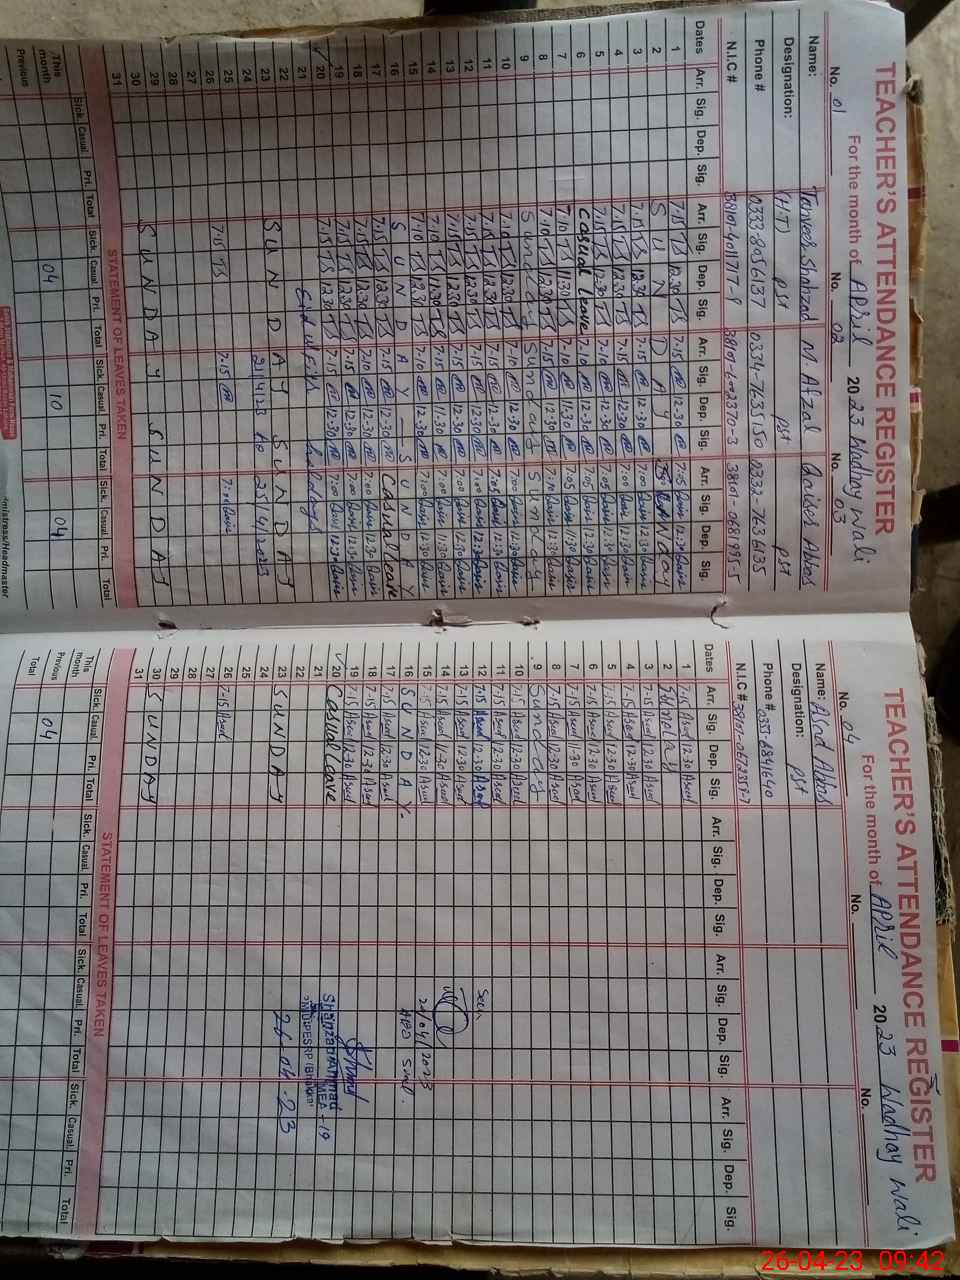 TEACHER'S ATTENDANCE REGISTER
For the month of April 2023 Wadhay Wali
No. 01 No. 02 No. 03
Name: Tanveer Shahzad M. Afzal Qaisar Abbas
Designation: (H.T) PST PST PST
Phone # 0333-8056137 0334-7635150 0332-7636135
N.I.C # 38101-4011717-9 38101-0681995-5
Dates Arr. Sig. Dep. Sig. Arr. Sig. Dep. Sig. Arr. Sig. Dep. Sig. Arr. Sig. Dep. Sig.
1 7:15 TS 12:30 TS 7:15 12:30 7:05 Qaisar 12:30 Qaisar
2 SUNDAY
3 7:15 TS 12:30 TS 7:15 12:30 7:00 12:30
4 7:15 TS 12:30 TS 7:15 12:30 7:00 12:30
5 7:15 TS 12:30 TS 7:10 12:30 7:05 12:30
6 Casual leave 7:15 12:30 7:05 12:30
7 7:10 TS 11:30 TS 7:10 11:30 7:05 11:30
8 7:10 TS 12:30 TS 7:15 12:30 7:10 12:30
9 Sunday Sunday Sunday
10 7:10 TS 12:30 TS 7:10 12:30 7:00 12:30
11 7:15 TS 12:30 TS 7:10 12:30 7:00 12:30
12 7:15 TS 12:30 TS 7:15 12:30 7:00 12:30
13 7:15 TS 12:30 TS 7:15 12:30 7:00 12:30
14 7:10 TS 11:30 TS 7:10 11:30 7:00 11:30
15 7:10 TS 12:30 TS 7:10 12:30 7:00 12:30
16 SUNDAY - SUNDAY
17 7:15 TS 12:30 TS 7:10 12:30 Casual leave
18 7:15 TS 12:30 TS 7:15 12:30 7:00 12:30
19 7:15 TS 12:30 TS 7:15 12:30 7:00 12:30
20 7:15 TS 12:30 TS 7:15 12:30 7:00 12:30
21 Eid ul Fitr holidays
22
23 SUNDAY SUNDAY
24
25 7:15 7:00 Qaisar
26 7:15 TS
27
28
29
30 SUNDAY SUNDAY
31
STATEMENT OF LEAVES TAKEN
Sick. Casual. Pri. Total Sick. Casual. Pri. Total Sick. Casual. Pri. Total Sick. Casual. Pri. Total
This month 04 10 04
Previous
TEACHER'S ATTENDANCE REGISTER
For the month of April 2023 Wadhay Wali
No. 04 No. No.
Name: Asad Abbas
Designation: PST
Phone # 0333-6841640
N.I.C #
Dates Arr. Sig. Dep. Sig. Arr. Sig. Dep. Sig. Arr. Sig. Dep. Sig. Arr. Sig. Dep. Sig.
1 7:15 Asad 12:30 Asad
2 Sunday
3 7:15 Asad 12:30 Asad
4 7:15 Asad 12:30 Asad
5 7:15 Asad 12:30 Asad
6 7:15 Asad 12:30 Asad
7 7:15 Asad 11:30 Asad
8 7:15 Asad 12:30 Asad
9 Sunday
10 7:15 Asad 12:30 Asad
11 7:15 Asad 12:30 Asad
12 7:15 Asad 12:30 Asad Seen
13 7:15 Asad 12:30 Asad
14 7:15 Asad 11:30 Asad
15 7:15 Asad 12:30 Asad 21/04/2023
16 SUNDAY
17 7:15 Asad 12:30 Asad
18 7:15 Asad 12:30 Asad
19 7:15 Asad 12:30 Asad
20 Casual leave
21 Shahzad Ahmad
22 MEA-19
23 SUNDAY 26-04-23
24
25
26 7:15 Asad
27
28
29
30 SUNDAY
31
STATEMENT OF LEAVES TAKEN
Sick. Casual. Pri. Total Sick. Casual. Pri. Total Sick. Casual. Pri. Total Sick. Casual. Pri. Total
This month 04
Previous
Total
26-04-23 09:42